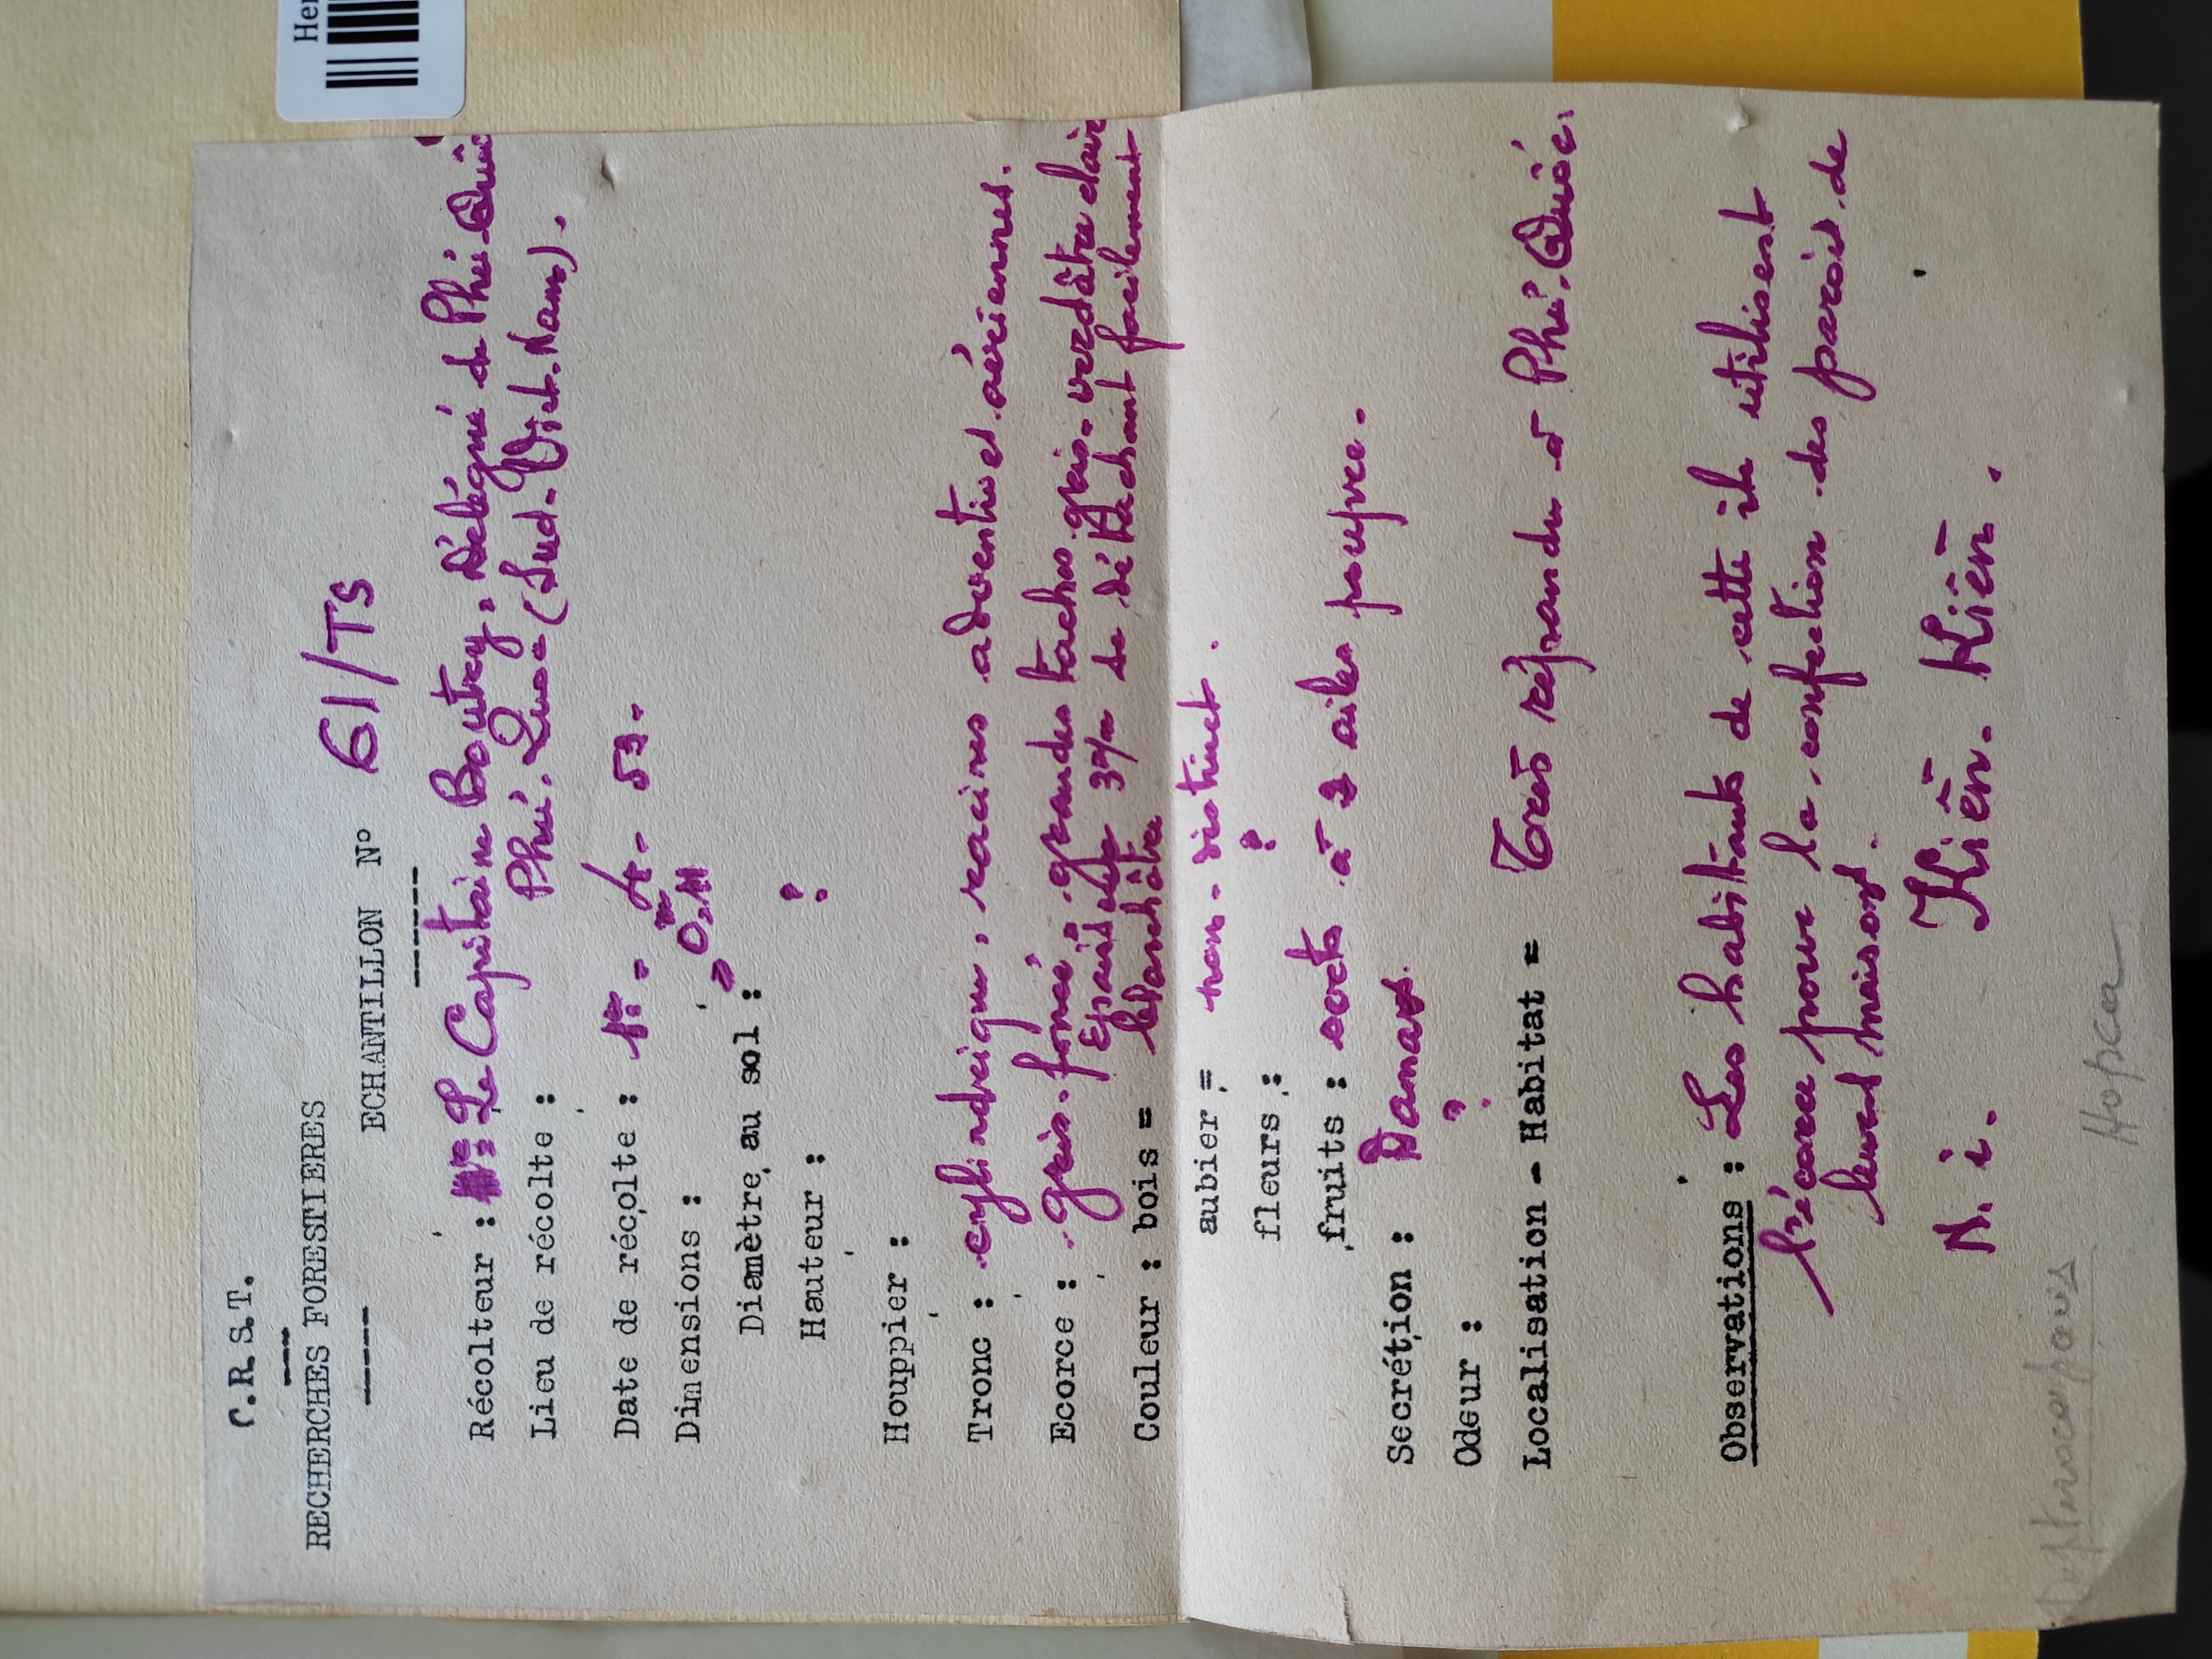 Her
C.R.S.T.
RECHERCHES FORESTIERES
ECHANTILLON N° 61/TS
Récolteur : Le Capitaine Boutry, Délégué de Phú-Quốc
Lieu de récolte : Phú-Quốc (Sud-Viet-Nam).
Date de récolte : 1er - 4 - 53 -
Dimensions :
Diamètre au sol : 0,m11
Hauteur : ?
Houppier :
Tronc : cylindrique, racines adventives aériennes.
Ecorce : gris-foncé, grandes taches gris-verdâtre clair
Epais de 3m/m se détachant facilement
Couleur : bois = blanchâtre
aubier = non-distinct.
fleurs : ?
fruits : secs à 2 ailes pourpre.
Secrétion : Damar.
Odeur : ?
Localisation - Habitat = Très répandu à Phú-Quốc.
Observations : Les habitants de cette île utilisent
l'écorce pour la confection des parois de
leurs maisons.
N. i. Kiên-Kiên.
Dipterocarpaceae
Hopea